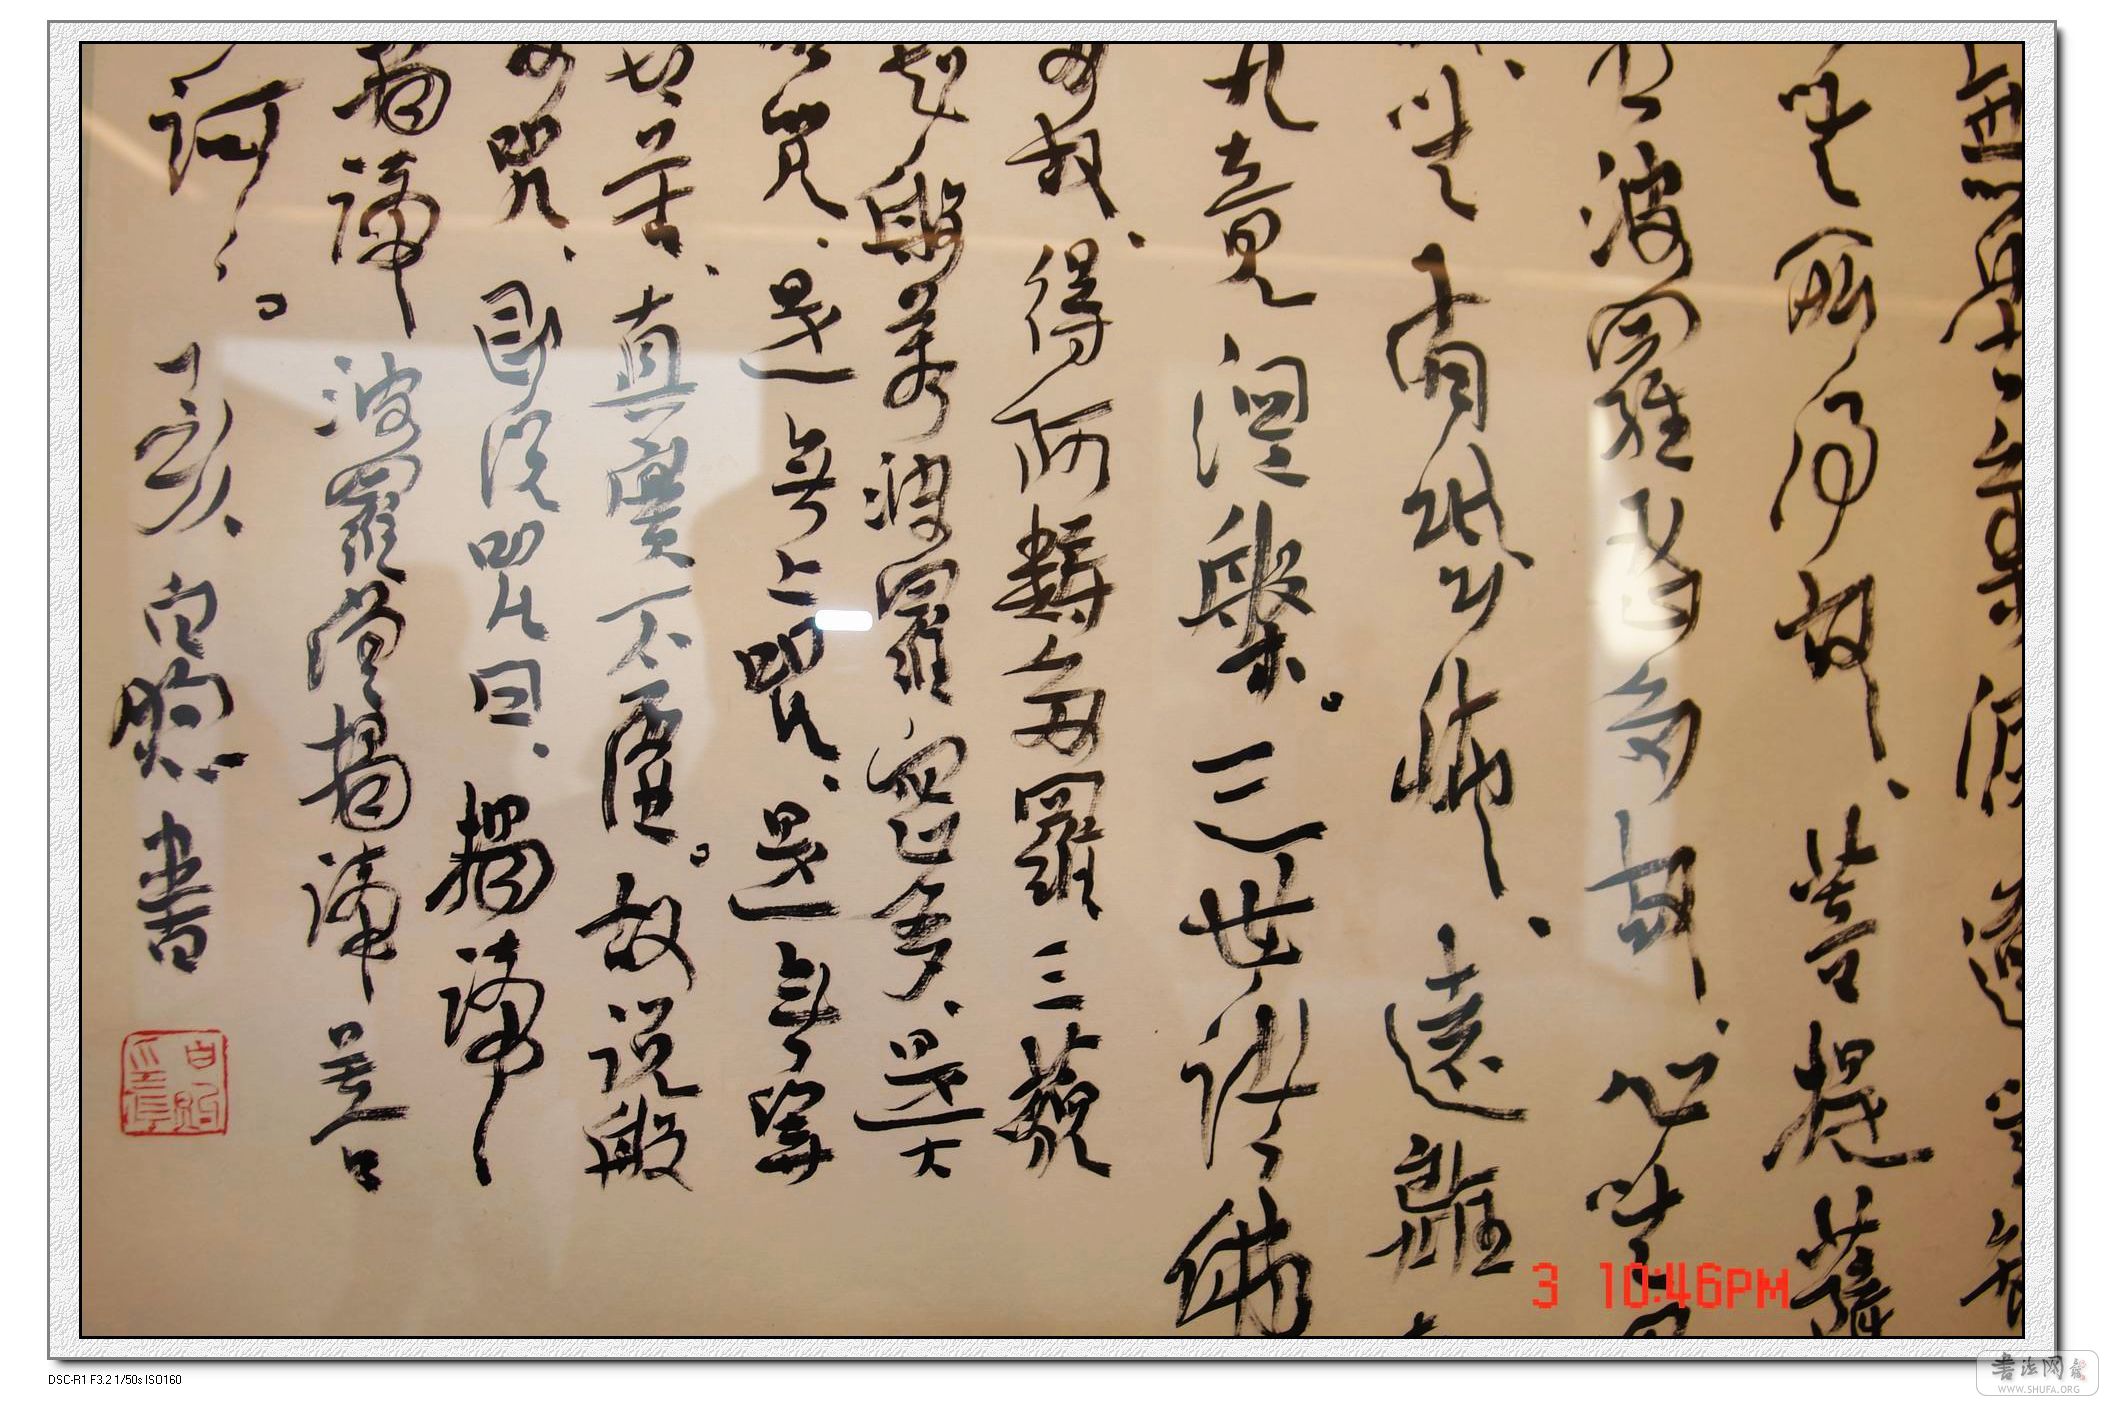 無苦集滅道無智
無所得故、菩提薩
波羅蜜多故、心無罣
無有恐怖、遠離
究竟涅槃。三世諸佛
多故、得阿耨多羅三藐
知般若波羅蜜多、是大
咒、是無上咒、是無等
切苦、真實不虛。故說般
多咒、即說咒曰、揭諦
揭諦波羅僧揭諦菩
訶。丁亥白煦書
3 10:46PM
DSC-R1 F3.2 1/50s ISO160
書法网
WWW.SHUFA.ORG